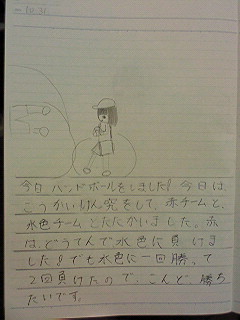 今日ハンドボールをしました!今日は、
こうかいけん究をして、赤チームと、
水色チームとたたかいました。赤
は、どうてんで水色に負けま
した!でも水色に一回勝って
2回負けたので、こんど勝ち
たいです。